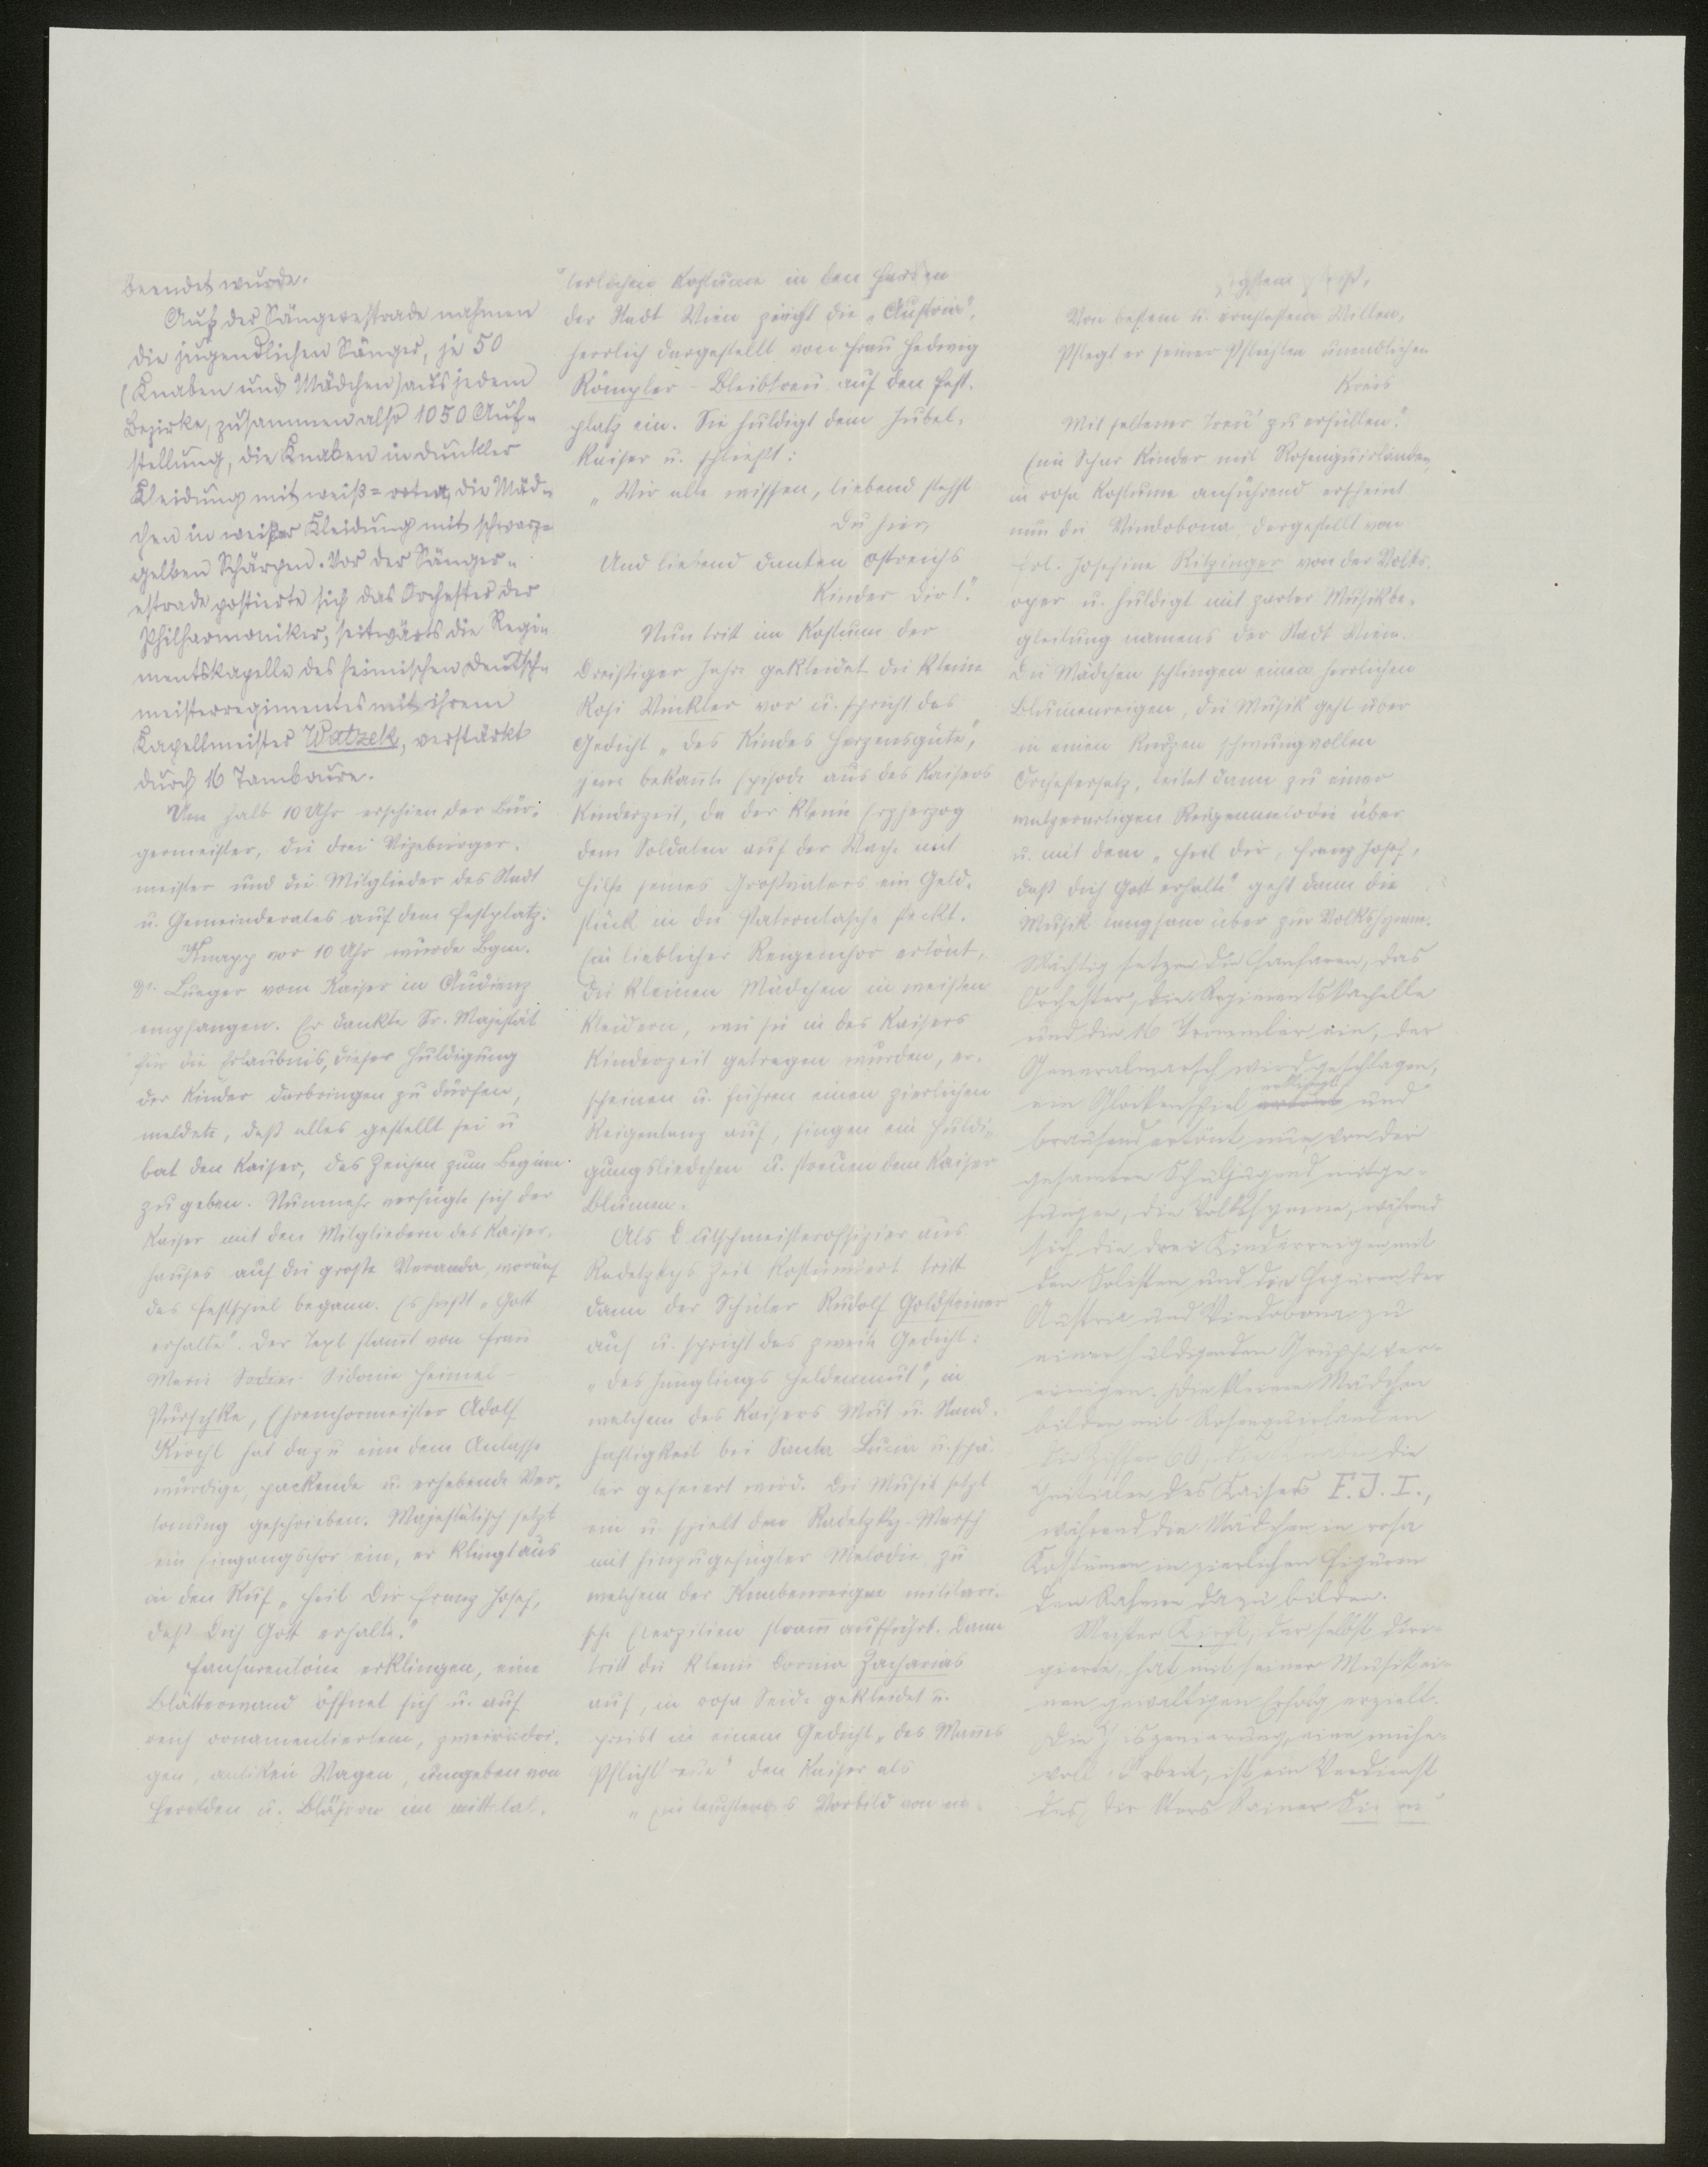 beendet wurde.
Auf der Sängerestrade nahmen
die jugendlichen Sänger, je 50
(Knaben und Mädchen) aus jedem
Bezirke, zusammen also 1050 Auf-
stellung, die Knaben in dunkler
Kleidung mit weiß=roten, die Mäd-
chen in weißer Kleidung mit schwarz-
gelben Schärpen. Vor der Sänger-
estrade postierte sich das Orchester der
Philharmoniker, seitwärts die Regi-
mentskapelle des heimischen Deutsch-
meisterregimentes mit ihrem
Kapellmeister Watzek, verstärkt
durch 16 Tamboure.
Um halb 10 Uhr erschien der Bür-
germeister, die drei Vizebürger-
meister und die Mitglieder des Stadt
u. Gemeinderates auf dem Festplatz.
Knapp vor 10 Uhr wurde Bgm.
Dr. Lueger vom Kaiser in Audienz
empfangen. Er dankte Sr. Majestät
für die Erlaubnis, dieser Huldigung
der Kinder darbringen zu dürfen,
meldete, daß alles gestellt sei u
bat den Kaiser, das Zeichen zum Beginn
zu geben. Nunmehr verfügte sich der
Kaiser mit den Mitgliedern des Kaiser-
hauses auf die große Veranda, worauf
das Festspiel begann. Es heißt „Gott
erhalte". Der Text stammt von Frau
Marie Sidonie Heimel-
Purschke, Ehrenchormeister Adolf
Kirchl hat dazu eine dem Anlasse
würdige, packende u. erhebende Ver-
tonung geschrieben. Majestätisch setzt
ein Eingangschor ein, er klingt aus
in den Ruf „Heil Dir Franz Josef,
daß Dich Gott erhalte."
Fanfarentöne erklingen, eine
Blätterwand öffnet sich u. auf
reich ornamentiertem, zweirädri-
gen, antiken Wagen, umgeben von
Herolden u. Bläsern im mittelal-
terlichen Kostüme in den Farben
der Stadt Wien zieht die „Austria",
herrlich dargestellt von Frau Hedwig
Römpler-Bleibtreu auf den Fest-
platz ein. Sie huldigt dem Jubel-
kaiser u. schließt:
„Wir alle wissen, liebend stehst
Du hier,
Und liebend danken Östreichs
Kinder Dir!"
Nun tritt im Kostüm der
Dreißiger Jahre gekleidet die kleine
Rosi Winkler vor u. spricht das
Gedicht „des Kindes Herzensgüte",
jene bekannte Episode aus des Kaisers
Kinderzeit, da der kleine Erzherzog
dem Soldaten auf der Wache mit
Hilfe seines Großvaters ein Geld-
stück in die Patrontasche steckt.
Ein lieblicher Reigenchor ertönt,
die kleinen Mädchen in weißen
Kleidern, wie sie in des Kaisers
Kinderzeit getragen wurden, er-
scheinen u. führen einen zierlichen
Reigentanz auf, singen ein Huldi-
gungsliedchen u. streuen dem Kaiser
Blumen.
Als Deutschmeisteroffizier aus
Radetzkys Zeit kostümiert tritt
dann der Schüler Rudolf Goldsteiner
auf u. spricht das zweite Gedicht:
„des Jünglings Heldenmut", in
welchem des Kaisers Mut u. Stand-
haftigkeit bei Santa Lucia u. spä-
ter gefeiert wird. Die Musik setzt
ein u. spielt den Radetzky-Marsch
mit hinzugefügter Melodie, zu
welchem der Knabenreigen militäri-
sche Exerzitien stramm aufführt. Dann
tritt die kleine Zacharias
auf, in rosa Seide gekleidet u.
preist in einem Gedicht „des Mannes
Pflichttreue" den Kaiser als
„Ein leuchtendes Vorbild von
Von bestem u. ernstestem Willen,
Pflegt er seiner Pflichten unendlichen
Kreis
Mit seltener Treu' zu erfüllen."
Eine Schar Kinder mit Rosenguirlanden
in rosa Kostüme anführend erscheint
nun die Vindobona, dargestellt von
Frl. Josefine Ritzinger von der Volks-
oper u. huldigt mit zarter Musikbe-
gleitung namens der Stadt Wien.
Die Mädchen schlingen einen herrlichen
Blumenreigen, die Musik geht über
in einen kurzen schwungvollen
Orchestersatz, leitet dann zu einer
walzerartigen Reigenmelodie über
u. mit dem „Heil dir, Franz Josef,
daß dich Gott erhalte" geht dann die
Musik langsam über zur Volkshymne.
Mächtig setzen die Fanfaren, das
Orchester, die Regimentskapelle
und die 16 Trommler ein, der
Generalmarsch wird geschlagen,
ein Glockenspiel ertönt erklingt und
brausend ertönt nun, von der
gesamten Schuljugend mitge-
sungen, die Volkshymne, während
sich die drei Kinderreigen mit
den Solisten und den Figuren der
Austria und Vindobona zu
einer huldigenden Gruppe ver-
einigen. Die kleinen Mädchen
bilden mit Rosenguirlanden
die Ziffer 60, die Knaben die
Initialen des Kaisers F. J. I.,
während die Mädchen in rosa
Kostümen in zierlichen Figuren
den Rahmen dazu bilden.
Meister Kirchl, der selbst diri-
gierte, hat mit seiner Musik ei-
nen gewaltigen Erfolg erzielt.
Die Inszenierung, eine mühe-
volle Arbeit, ist ein Verdienst
des